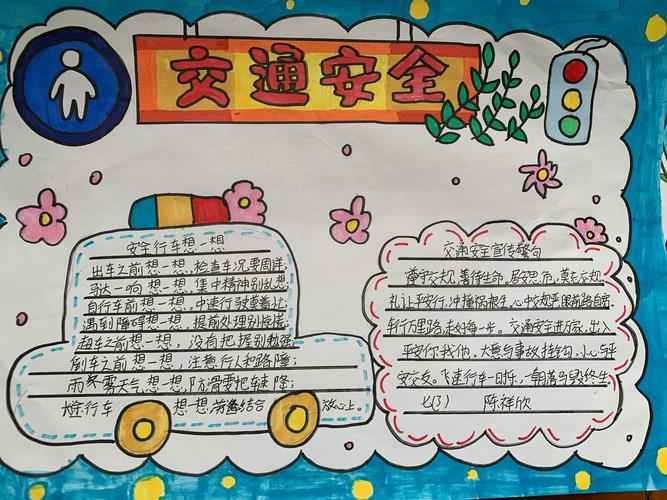 交通安全
安全行车想一想
出车之前想一想,检查车况要周详;
马达一响想一想,集中精神别乱想
自行车前想一想,中速行驶
遇到障碍想一想,提前处理别
超车之前想一想,没有把握别勉强
倒车之前想一想,注意行人和路障;
雨冬雾天气想一想,防滑要把车速降;
行车 想想 结合 放心上。
交通安全宣传警句
遵守交规,善待生命,居安思危,莫忘交规
礼让平安行,冲撞祸根生,心中交规严眼前路自宽
车行万里路,走好每一步。交通安全进万家,出入
平安你我他,大意与事故挂钩,小心与平
安交友。飞速行车一时,一朝 毁终生
七(3) 陈祥欣